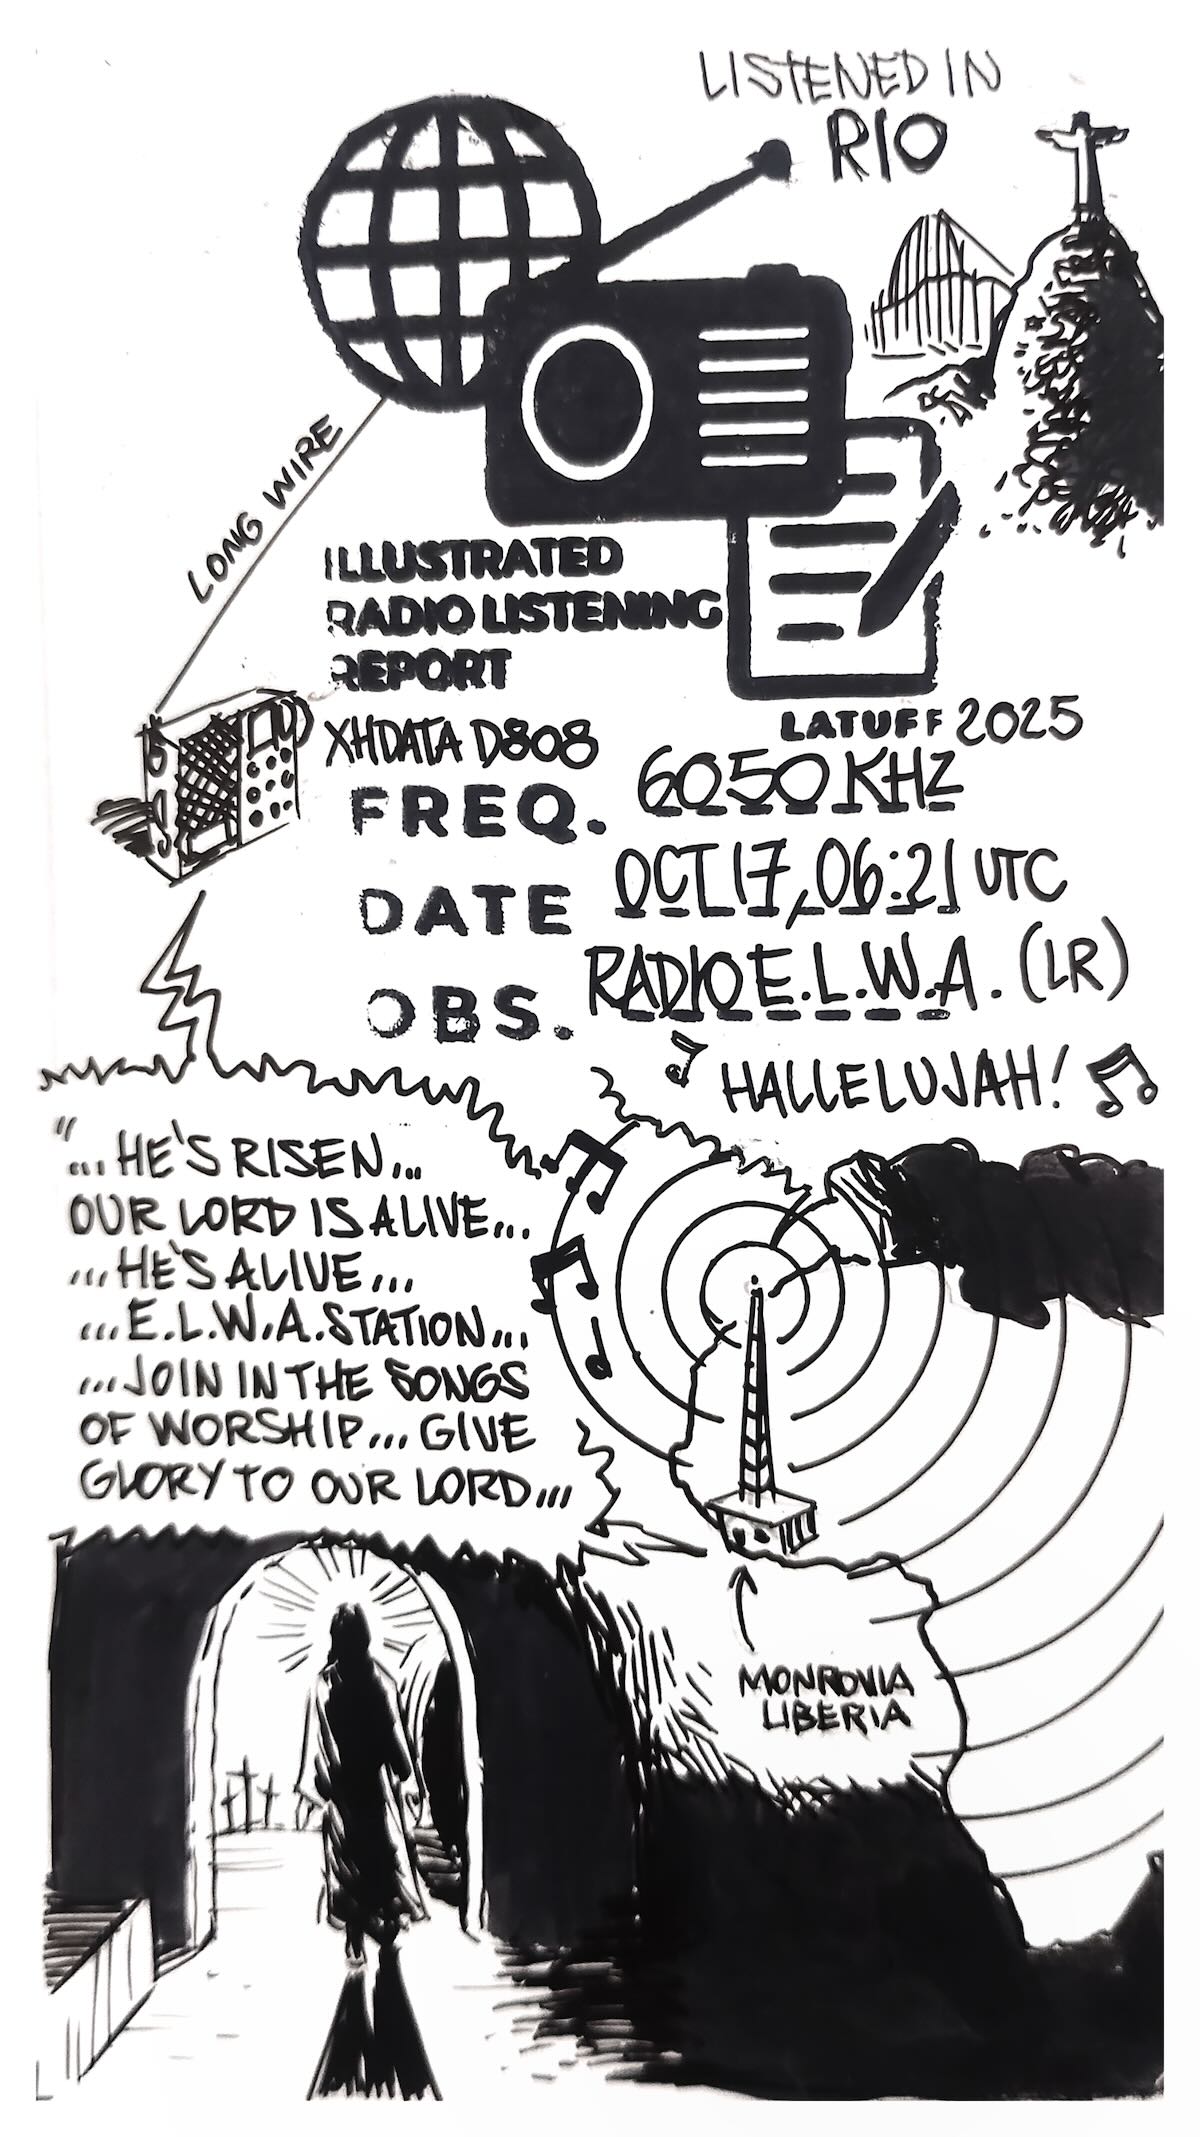 LISTENED IN
RIO
LONG WIRE
ILLUSTRATED
RADIO LISTENING
REPORT
LATUFF 2025
XHDATA D808
FREQ. 6050 KHZ
DATE OCT 17, 06:21 UTC
OBS. RADIO E.L.W.A. (LR)
HALLELUJAH!
"... HE'S RISEN...
OUR LORD IS ALIVE...
... HE'S ALIVE...
... E.L.W.A. STATION...
... JOIN IN THE SONGS
OF WORSHIP... GIVE
GLORY TO OUR LORD...
MONROVIA
LIBERIA